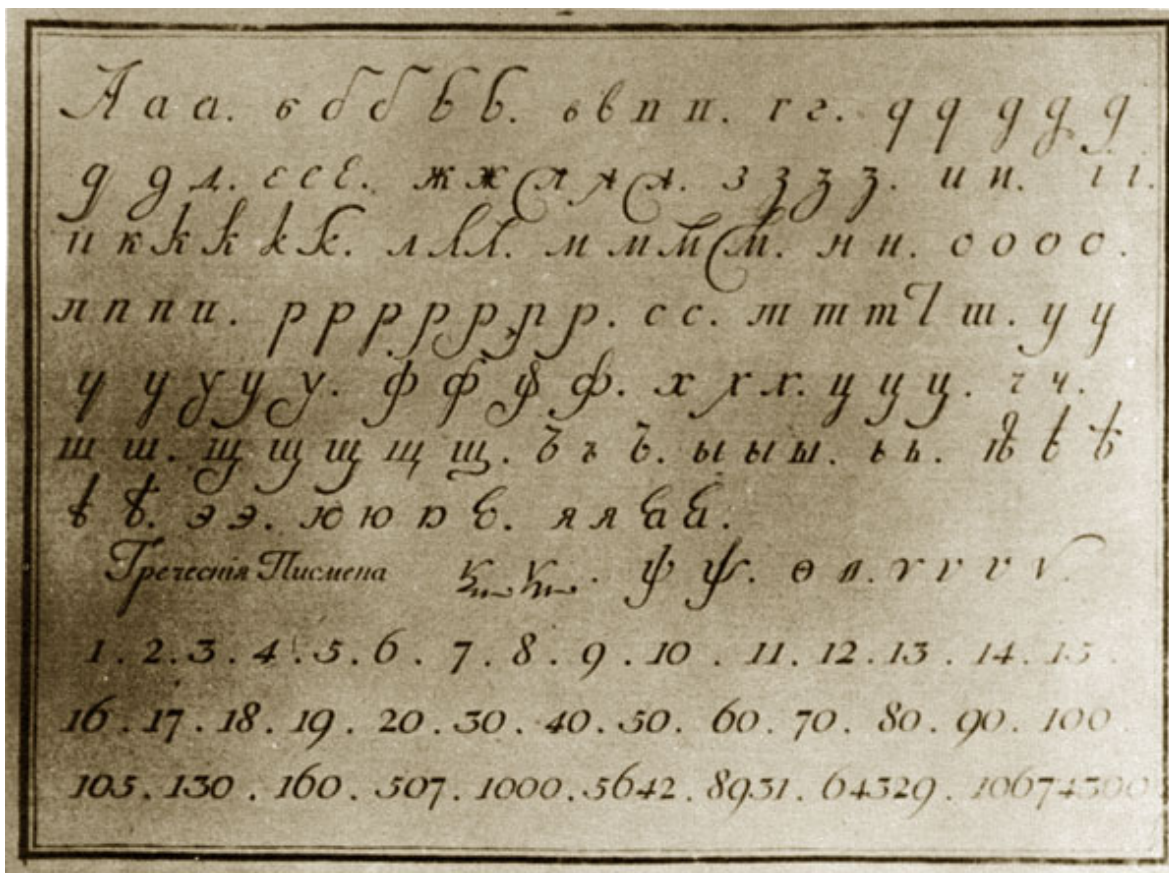 А а а. б б б б б. в в п п. г г. д д д д д
д д д. е е е. ж ж ж ж ж. з з з з. и и. і і.
и к к к к к. л л л. м м м м. н н. о о о о.
п п п п. р р р р р р р. с с. т т т т ш. у у
у у у у у. ф ф ф ф. х х х. ц ц ц. ч ч.
ш ш. щ щ щ щ щ. ъ ъ ъ. ы ы ы. ь ь. ѣ ѣ ѣ
ѣ ѣ. э э. ю ю ю ю. я я я я.
Греческія Писмена ѱ ѱ. ѳ ѳ. ѵ ѵ ѵ ѵ.
1. 2. 3. 4. 5. 6. 7. 8. 9. 10. 11. 12. 13. 14. 15
16. 17. 18. 19. 20. 30. 40. 50. 60. 70. 80. 90. 100
105. 130. 160. 507. 1000. 5642. 8931. 64329. 10674300